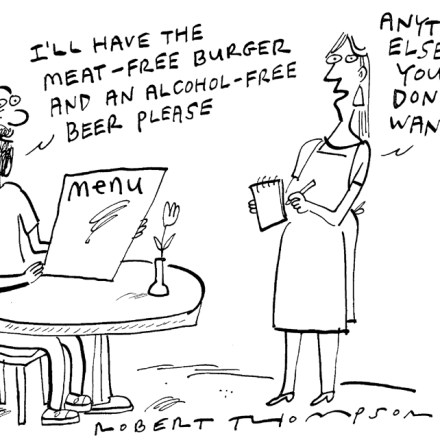 I'LL HAVE THE
MEAT-FREE BURGER
AND AN ALCOHOL-FREE
BEER PLEASE
ANYT
ELSE
YOU
DON
WAN
menu
ROBERT THOMPSON